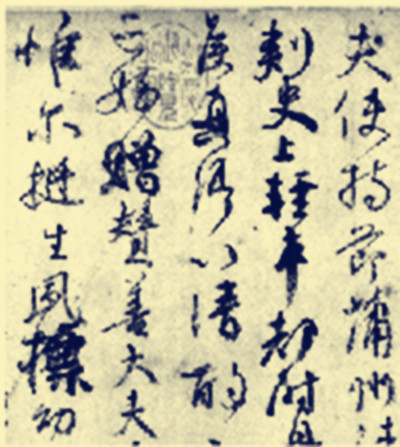 夫使持節蒲州諸
刺史上輕車都尉
侯真卿以清酌
亡姪贈贊善大夫
惟尔挺生夙標幼